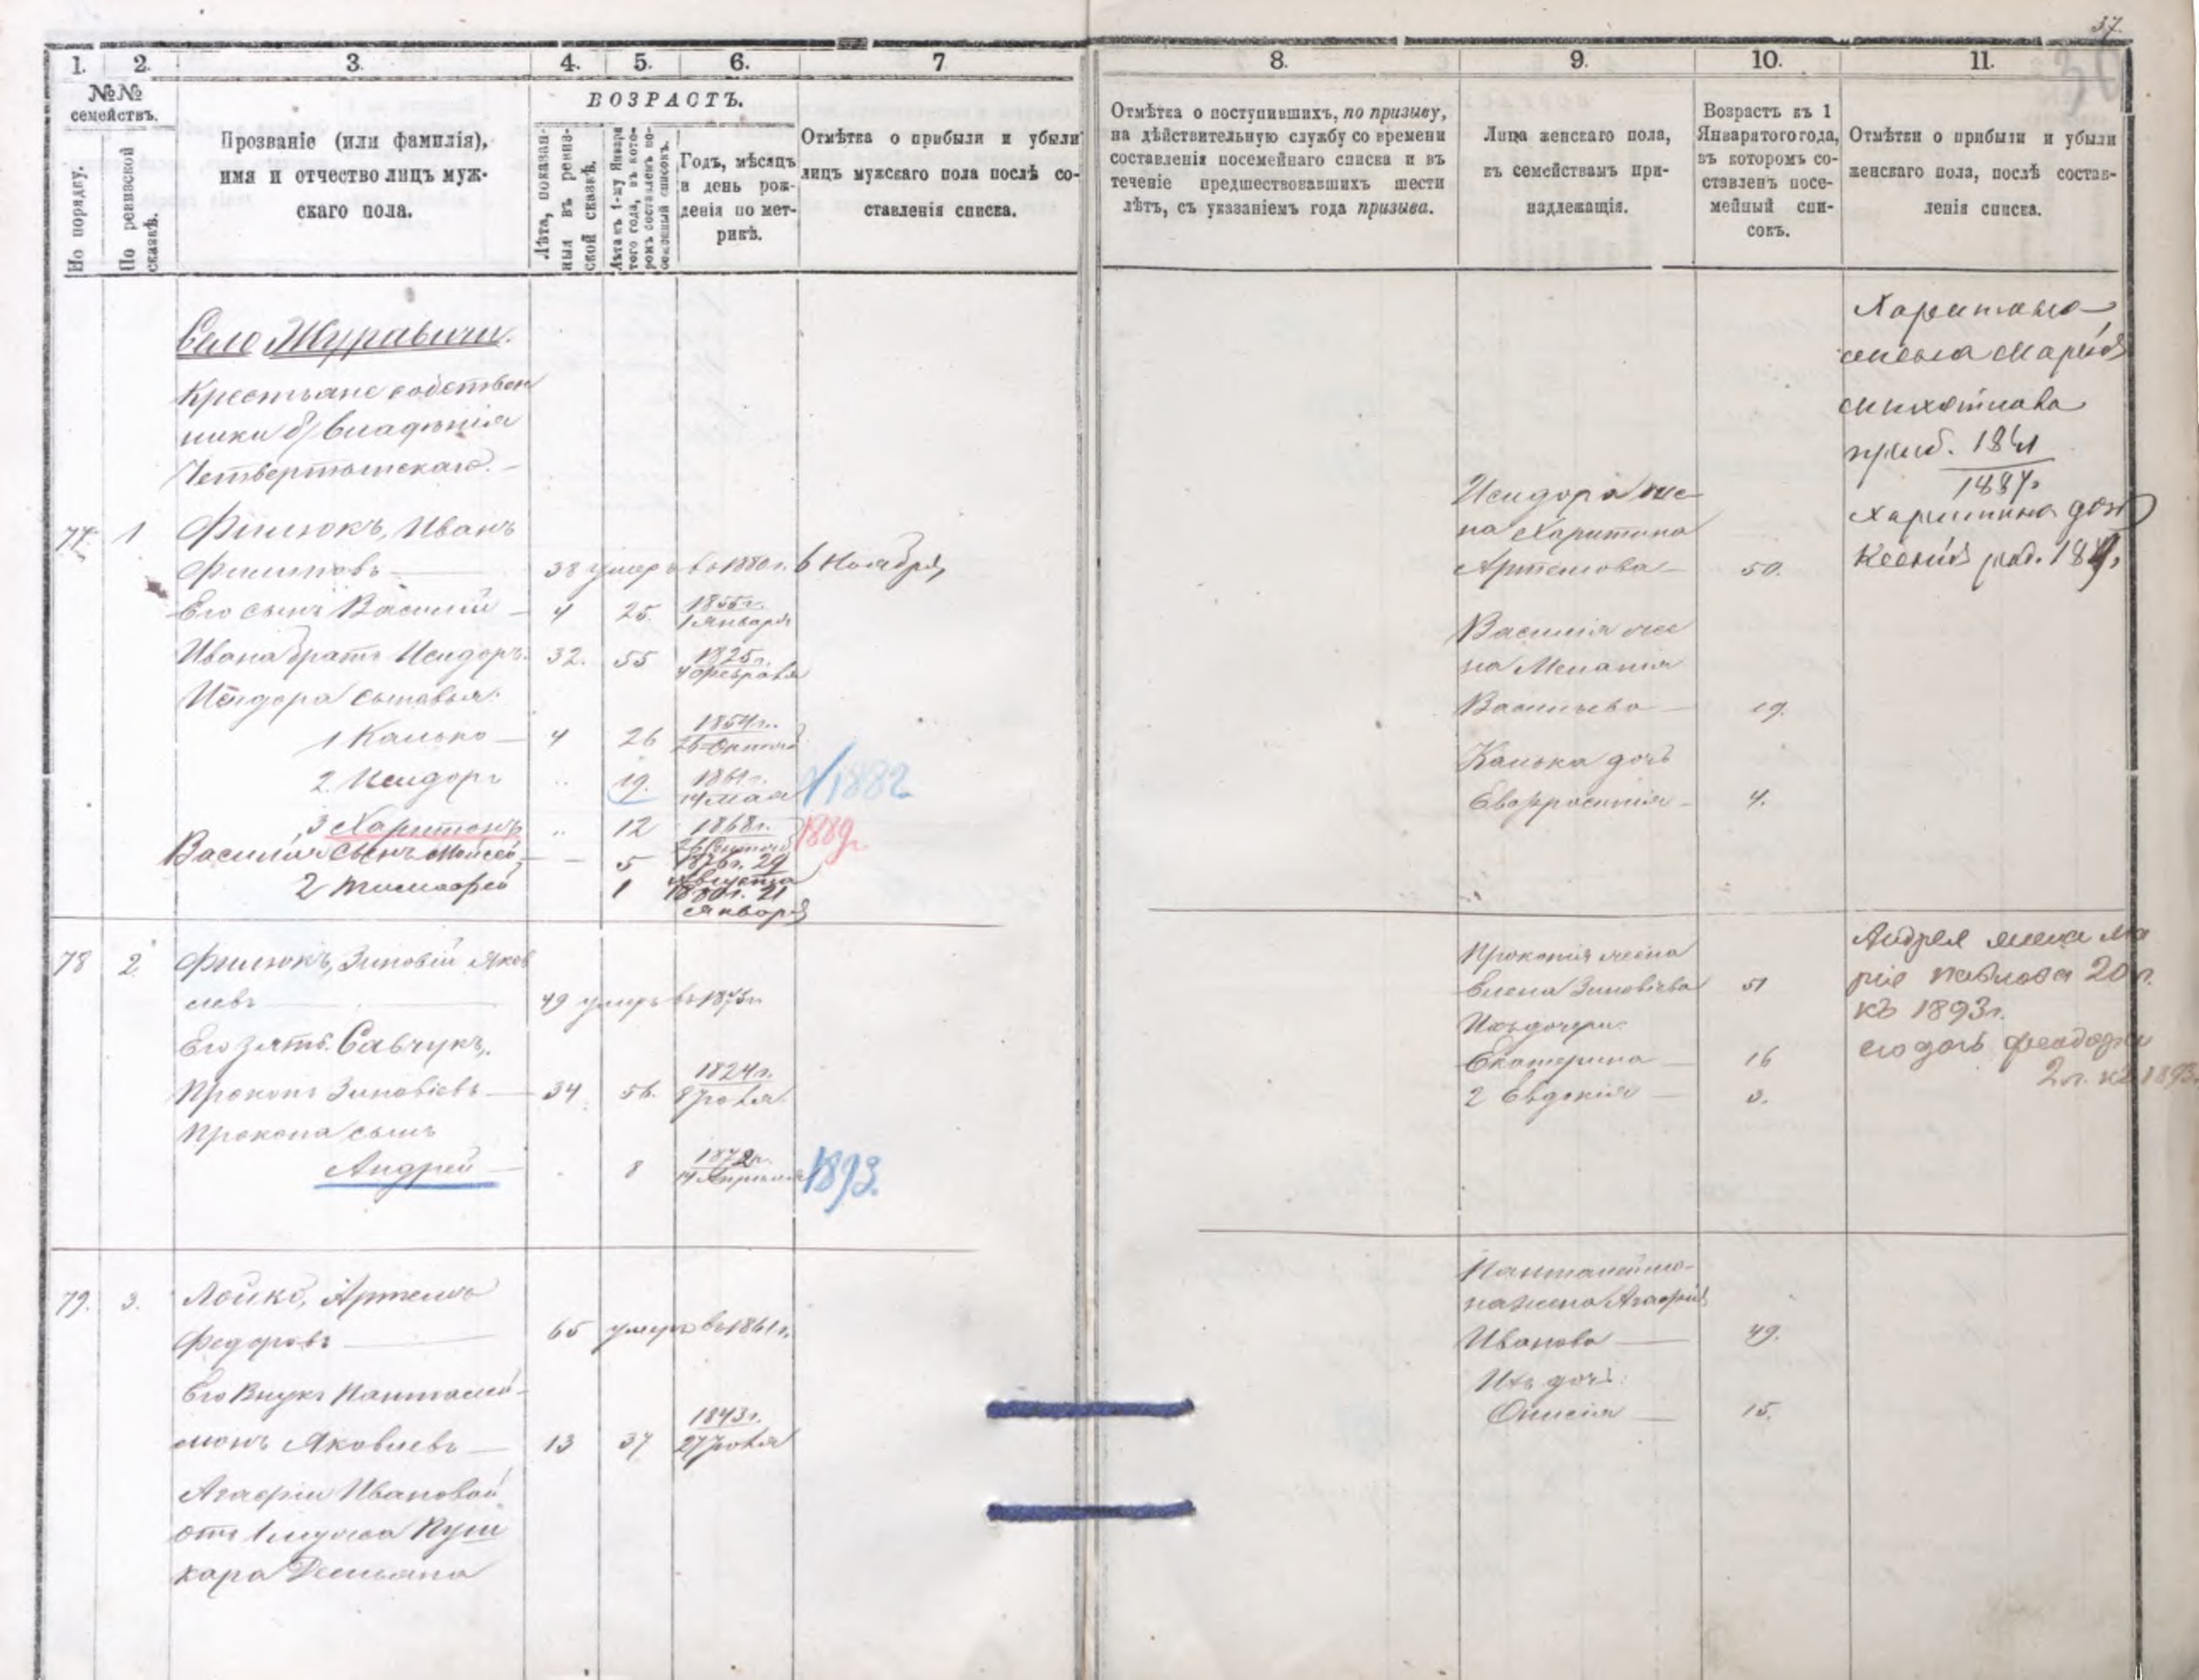 37.
1. 2. 3. 4. 5. 6. 7
№№ семействъ.
По порядку.
По ревизской сказкѣ.
Прозваніе (или фамилія),
имя и отчество лицъ муж-
скаго пола.
ВОЗРАСТЪ.
Лѣта, показан-
ныя въ ревиз-
ской сказкѣ.
Лѣта къ 1-му Января
того года, въ кото-
ромъ составленъ по-
семейный списокъ.
Годъ, мѣсяцъ
и день рож-
денія по мет-
рикѣ.
Отмѣтка о прибыли и убыли
лицъ мужскаго пола послѣ со-
ставленія списка.
Село Журавичи.
Крестьяне собствен
ники б/ владѣнія
Четвертынскаго.
77. 1 Филюкъ, Иванъ
Филиповъ 38 умеръ въ 1880 г. 6 Ноября
Его сынъ Василій 4 25. 1855 г.
1 Января
Ивана братъ Исидоръ. 32. 55 1825 г.
4 Февраля
Исидора сыновья:
1 Калько 4 26 1854 г.
26 Октяб
2 Исидоръ 19. 1861 г.
14 мая 1882
3 Харитонъ 12 1868 г.
26 1889 г.
Василія сынъ Мойсей 5 1876 г. 29
Августа
2 Тимофей 1 1880 г. 21
Января
78 2 Филюкъ, Зиновій Яков
левъ 49 умеръ въ
Его зять Савчукъ,
Прокопъ Зиновіевъ 34 56. 1824 г.
8 Іюля
Прокопа сынъ
Андрей 8 1872 г.
14 Апрѣля 1893.
79. 3. Лойко, Артемъ
Федоровъ 65 умеръ въ 1861 г.
Его внукъ Пантелей-
монъ Яковлевъ 13 37 1843 г.
27 Іюля
Агафіи Ивановой
отъ 1 мужа Пуш
кара Демьяна
8. 9. 10. 11.
Отмѣтка о поступившихъ, по призыву,
на дѣйствительную службу со времени
составленія посемейнаго списка и въ
теченіе предшествовавшихъ шести
лѣтъ, съ указаніемъ года призыва.
Лица женскаго пола,
къ семействамъ при-
надлежащія.
Возрастъ къ 1
Января того года,
въ которомъ со-
ставленъ посе-
мейный спи-
сокъ.
Отмѣтки о прибыли и убыли
женскаго пола, послѣ состав-
ленія списка.
Харитона
жена Марія
приб.
1887
Харитона доч
Ксенія род.
Исидора же-
на Харитина
Артемова 50.
Василія же
на Меланія
Васильева 19.
Калька дочь
Евфросинія 4.
Прокопія жена
Елена Зиновіева 51
Ихъ дочери:
Екатерина 16
2 Евдокія 3.
Андрея жена Ма
рія Павлова 20 л.
къ 1893 г.
его дочь Феодора
2 л. къ 1893
Пантелеймо-
на жена Агафія
Иванова 49.
Ихъ дочь:
Онисія 15.